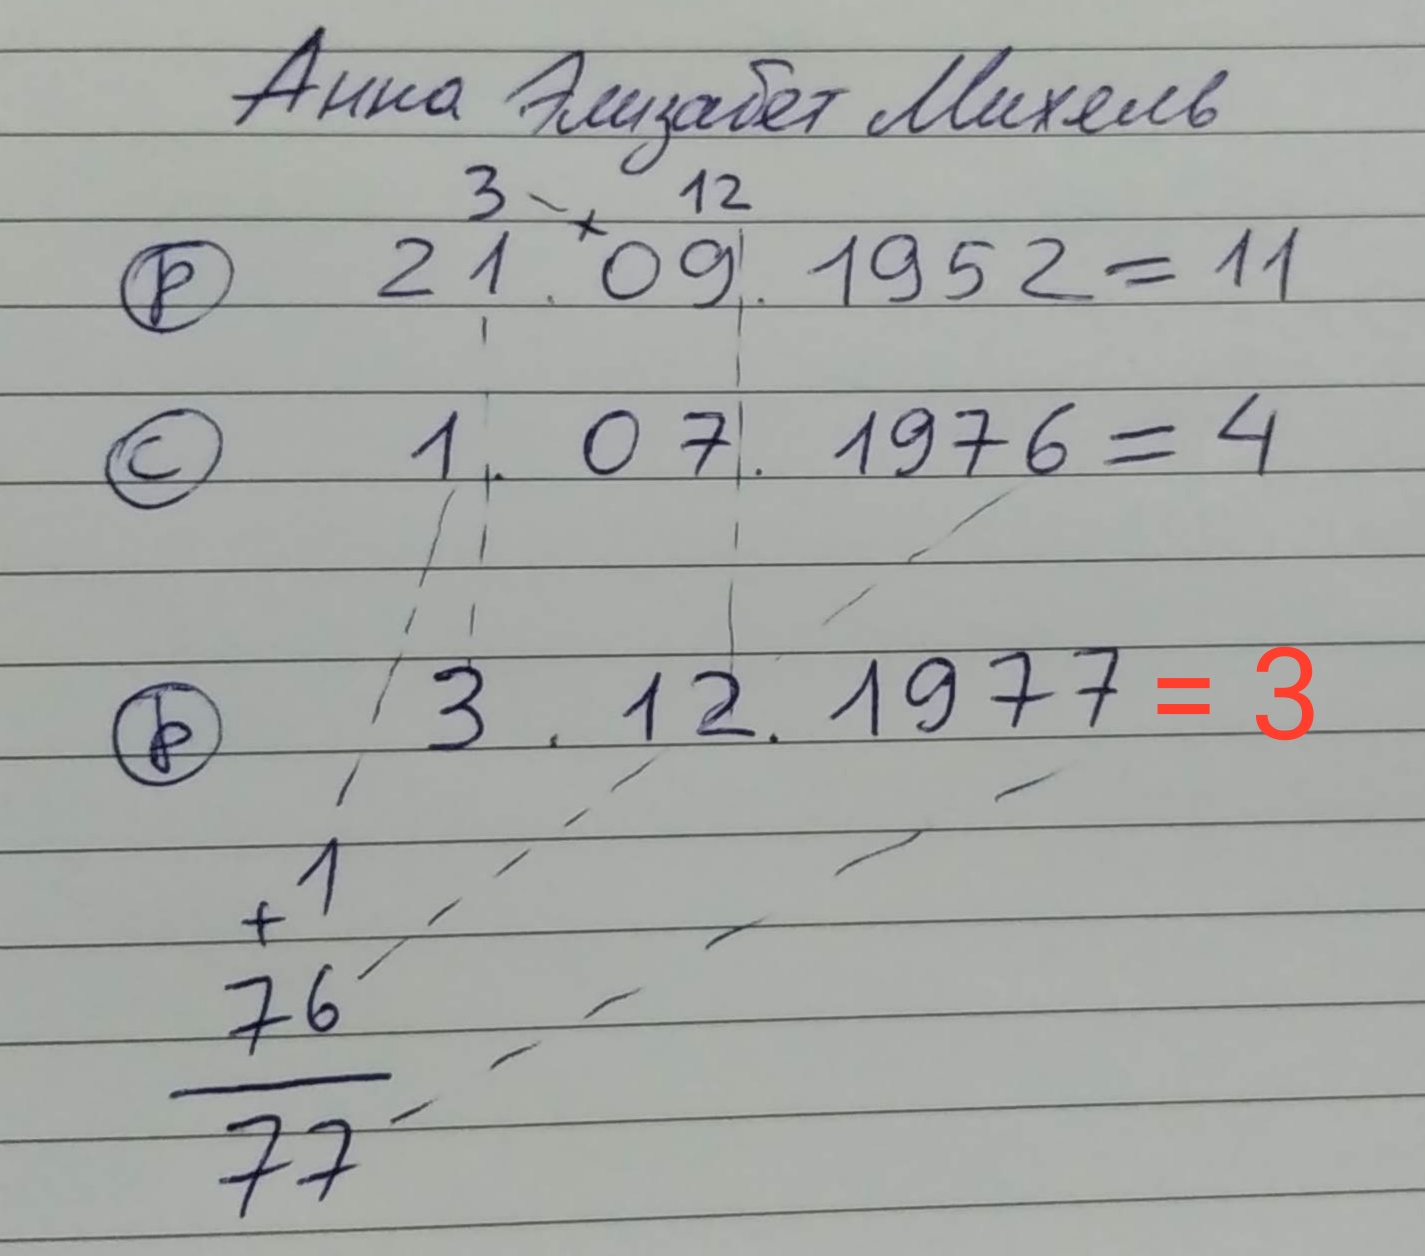 Анна Элизабет Михель
3 12
Р 21.09.1952 = 11
С 1.07.1976 = 4
Р 3.12.1977 = 3
+ 1
76
77